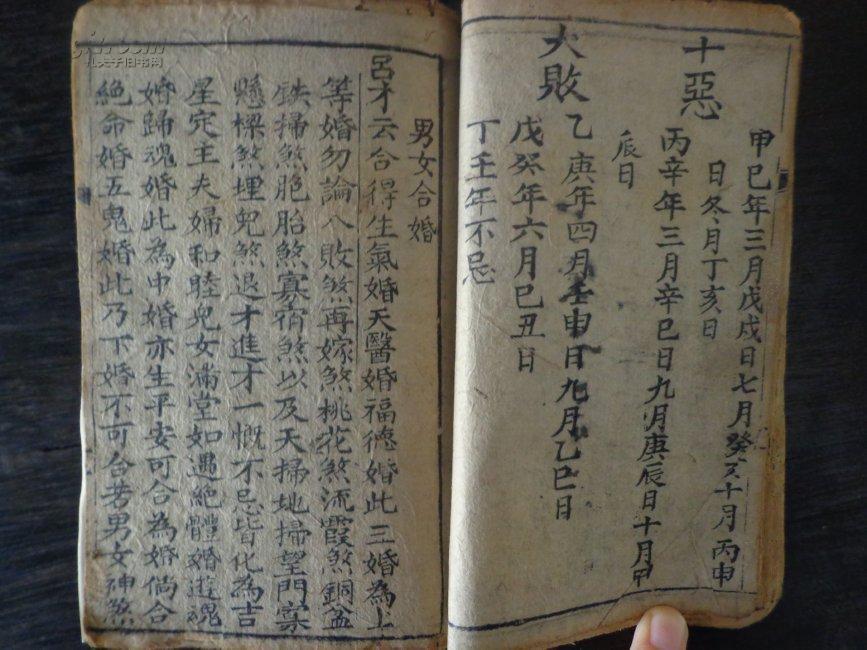 十惡
大敗
甲巳年三月戊戌日七月癸亥十月丙申
日冬月丁亥日
丙辛年三月辛巳日九月庚辰日十月甲
辰日
乙庚年四月壬申日九月乙巳日
戊癸年六月巳丑日
丁壬年不忌
男女合婚
呂才云合得生氣婚天醫婚福德婚此三婚為上
等婚勿論八敗煞再嫁煞桃花煞流霞煞銅盆
鉄掃煞胞胎煞寡宿煞以及天掃地掃望門寡
懸樑煞埋兒煞退才進才一慨不忌皆化為吉
星完主夫婦和睦兒女滿堂如遇絕體婚遊魂
婚歸魂婚此為中婚亦生平安可合為婚倘合
絕命婚五鬼婚此乃下婚不可合若男女神煞
孔夫子旧书网